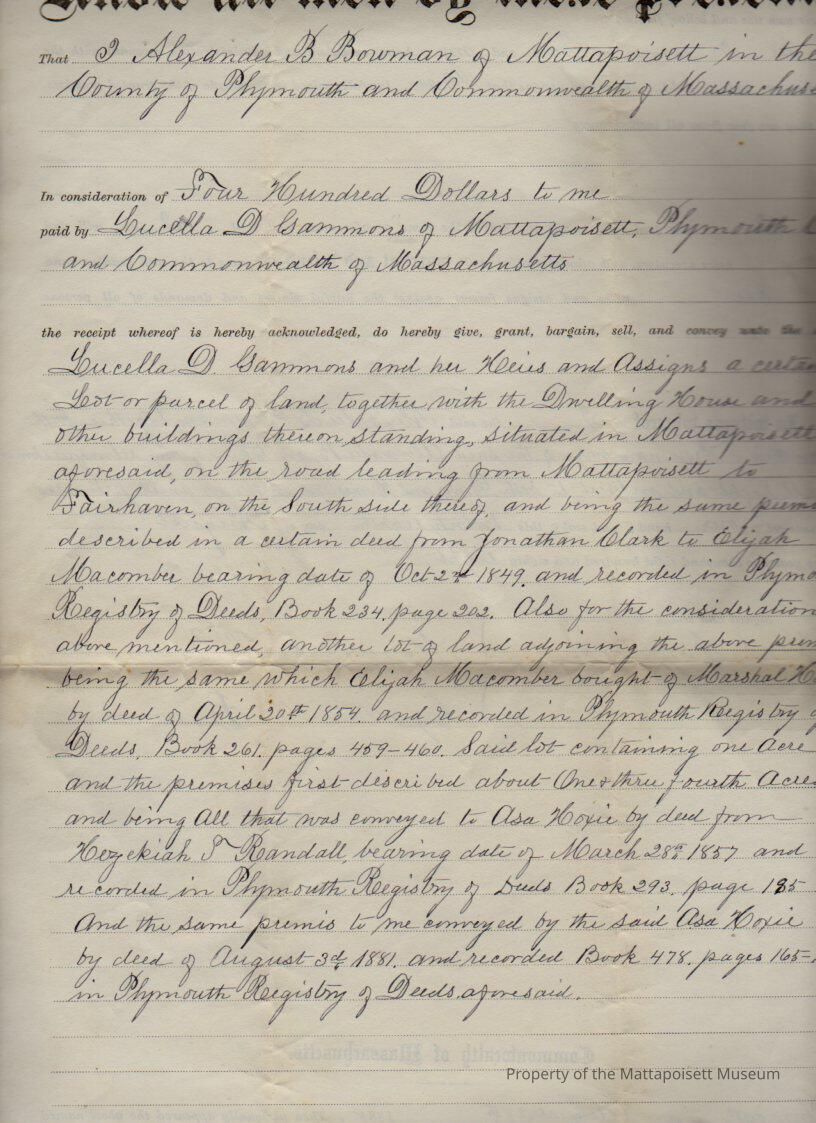 Know all men by these presents
That I Alexander B Bowman of Mattapoisett in the
County of Plymouth and Commonwealth of Massachuse
In consideration of Four Hundred Dollars to me
paid by Lucella D Gammons of Mattapoisett, Plymouth
and Commonwealth of Massachusetts
the receipt whereof is hereby acknowledged, do hereby give, grant, bargain, sell, and convey unto the
Lucella D. Gammons and her Heirs and Assigns a certain
Lot or parcel of land, together with the Dwelling House and
other buildings thereon standing, situated in Mattapoisett
aforesaid, on the road leading from Mattapoisett to
Fairhaven, on the South side thereof, and being the same premi
described in a certain deed from Jonathan Clark to Elijah
Macomber bearing date of Oct 2nd 1849. and recorded in Plymo
Registry of Deeds, Book 234. page 202. Also for the consideration
above mentioned, another lot of land adjoining the above prem
being the same which Elijah Macomber bought of Marshal H
by deed of April 20th 1854. and recorded in Plymouth Registry of
Deeds, Book 261. pages 459-460. Said lot containing one Acre
and the premises first described about One & three fourth Acres
and being All that was conveyed to Asa Hoxie by deed from
Hezekiah T Randall, bearing date of March 28th 1857 and
recorded in Plymouth Registry of Deeds Book 293. page 185
And the same premis to me conveyed by the said Asa Hoxie
by deed of August 3d 1881. and recorded Book 478. pages 165-
in Plymouth Registry of Deeds aforesaid.
Commonwealth of Massachusetts.
Property of the Mattapoisett Museum